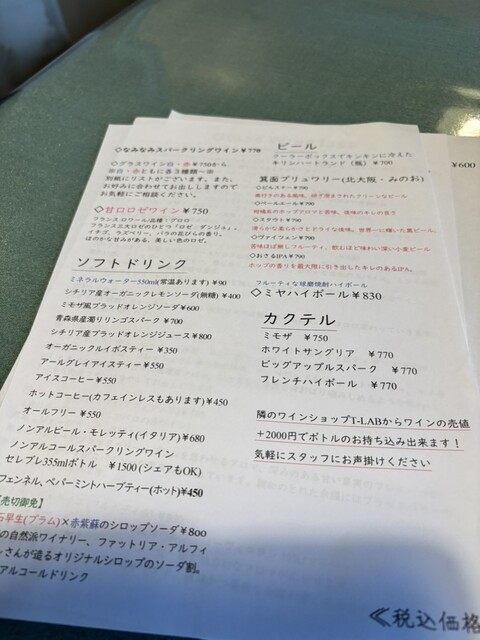 ◇なみなみスパークリングワイン¥770
◇グラスワイン白・赤 ¥750から
※白・赤ともに各3種類～※
別紙にリストがございます。また、
お好みに合わせてお出ししますので
お気軽にご相談ください。
◇甘口ロゼワイン ¥750
フランス ロワール/品種：グロロ
フランス三大ロゼのひとつ「ロゼ ダンジュ」
イチゴ、ラズベリー、バラの花びらの香り。
ほのかな甘みがある、美しい色のロゼ。
ソフトドリンク
ミネラルウォーター550ml(常温あります) ¥90
シチリア産オーガニックレモンソーダ(無糖) ¥400
ミモザ風ブラッドオレンジソーダ¥600
青森県産濁りリンゴスパーク ¥700
シチリア産ブラッドオレンジジュース¥800
オーガニックルイボスティー ¥350
アールグレイアイスティー ¥550
アイスコーヒー¥550
ホットコーヒー(カフェインレスもあります)¥450
オールフリー ¥550
ノンアルビール・モレッティ(イタリア)¥680
ノンアルコールスパークリングワイン
セレブレ355mlボトル ¥1500 (シェアもOK)
フェンネル、ペパーミントハーブティー(ホット)¥450
【売切御免】
石早生(プラム)×赤紫蘇のシロップソーダ¥800
の自然派ワイナリー、ファットリア・アルフィ
さんが造るオリジナルシロップのソーダ割。
アルコールドリンク
ビール
クーラーボックスでキンキンに冷えた
キリンハートランド（瓶）¥700
箕面ブリュワリー(北大阪・みのお)
◇ピルスナー ¥790
◇ペールエール ¥790
柑橘系のホップアロマと苦味、後味のキレの良さ
◇スタウト ¥790
◇ヴァイツェン ¥790
苦味ほぼ無しフルーティ、飲むほど味わい深い小麦ビール
◇おさるIPA ¥790
ホップの香りを最大限に引き出したキレのあるIPA。
フルーティな球磨焼酎ハイボール
◇ミヤハイボール ¥830
カクテル
ミモザ ¥750
ホワイトサングリア ¥770
ビッグアップルスパーク ¥770
フレンチハイボール ¥770
隣のワインショップT-LABからワインの売値
＋2000円でボトルのお持ち込み出来ます！
気軽にスタッフにお声掛けください
¥600
≪税込価格